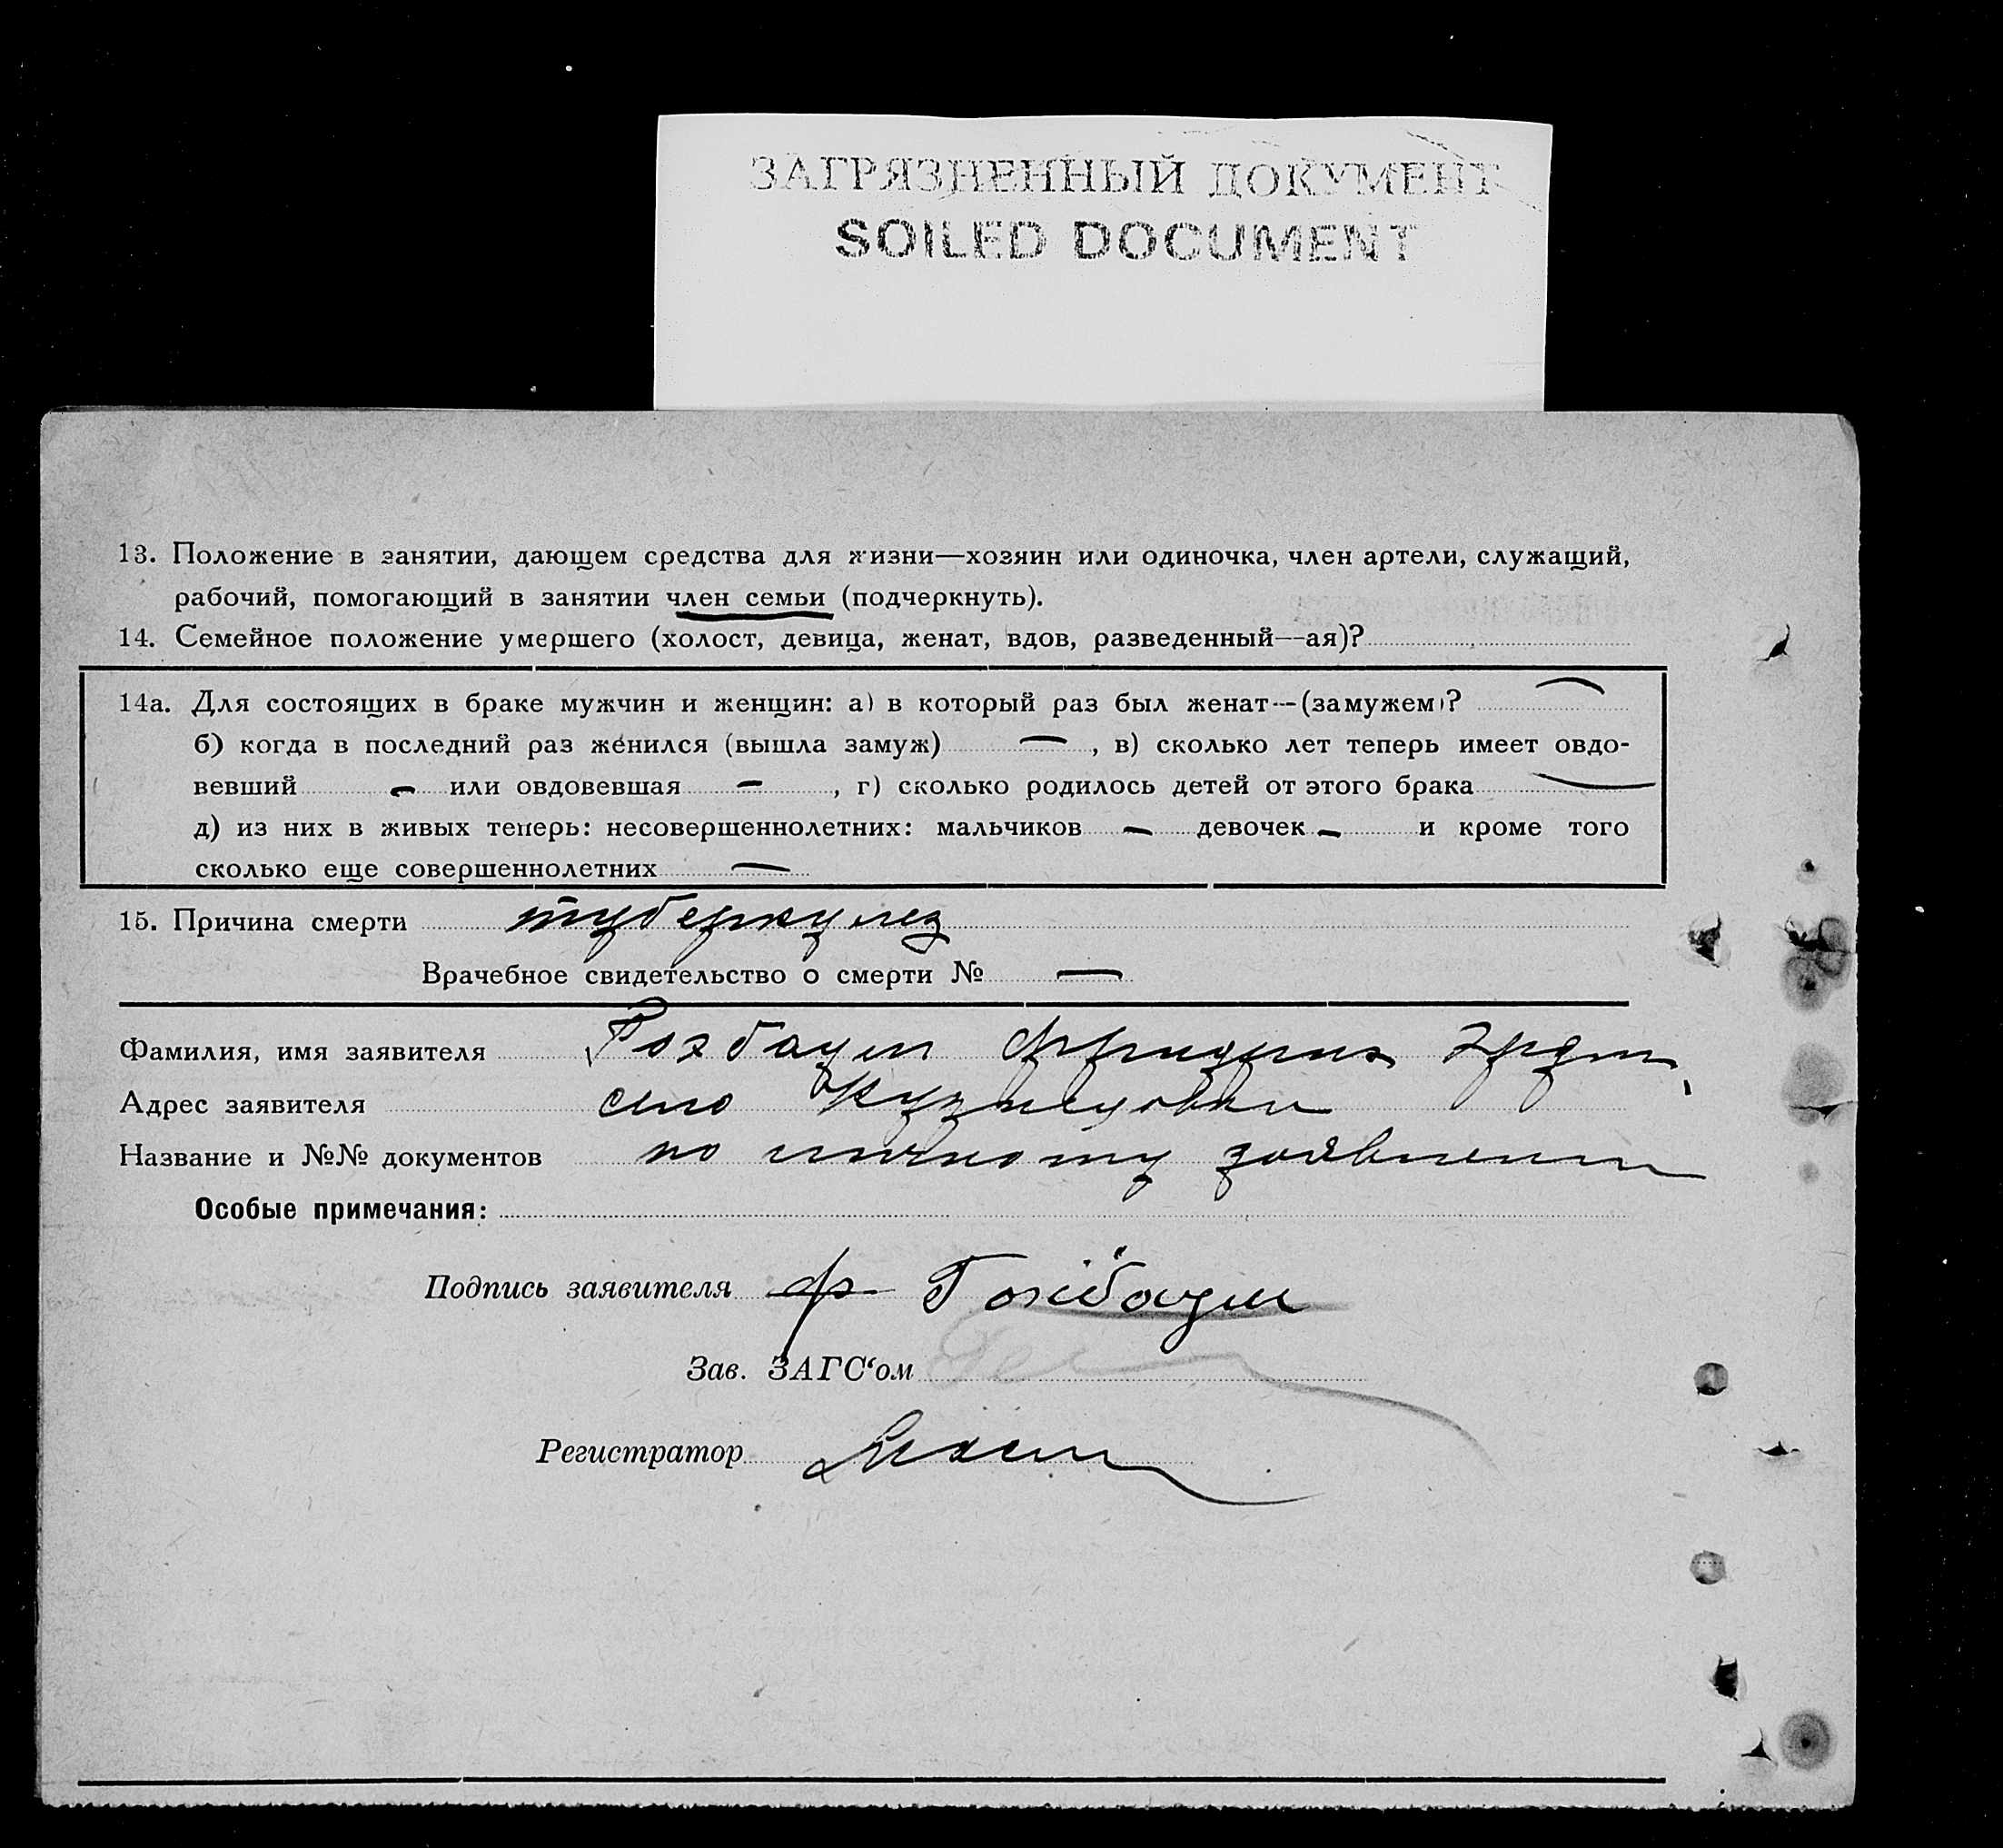 ЗАГРЯЗНЕННЫЙ ДОКУМЕНТ
SOILED DOCUMENT
13. Положение в занятии, дающем средства для жизни—хозяин или одиночка, член артели, служащий,
рабочий, помогающий в занятии член семьи (подчеркнуть).
14. Семейное положение умершего (холост, девица, женат, вдов, разведенный—ая)?
14а. Для состоящих в браке мужчин и женщин: а) в который раз был женат—(замужем)? —
б) когда в последний раз женился (вышла замуж) — , в) сколько лет теперь имеет овдо-
вевший — или овдовевшая — , г) сколько родилось детей от этого брака —
д) из них в живых теперь: несовершеннолетних: мальчиков — девочек — и кроме того
сколько еще совершеннолетних —
15. Причина смерти туберкулез
Врачебное свидетельство о смерти № —
Фамилия, имя заявителя Фридрих
Адрес заявителя село
Название и №№ документов по личному заявлению
Особые примечания:
Подпись заявителя Ф
Зав. ЗАГС‘ом
Регистратор